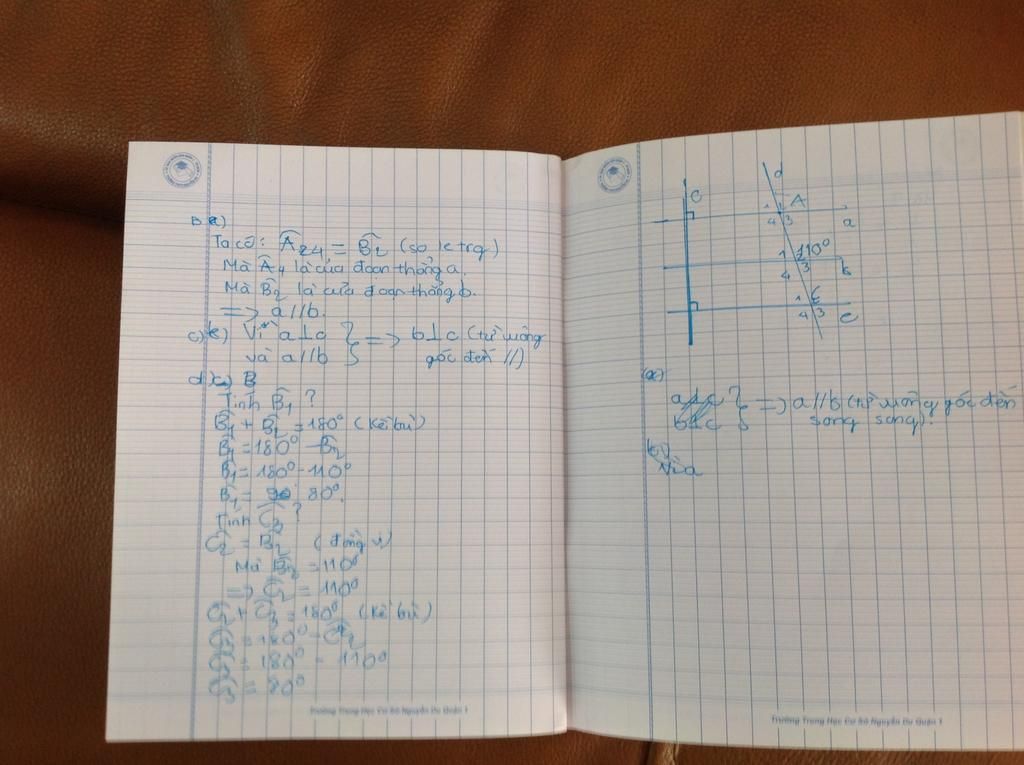 B a)
Ta có: Â₂₄ = B̂₂ (so le trg)
Mà Â₄ là của đoạn thẳng a.
Mà B̂₂ là của đoạn thẳng b.
=> a//b.
c) Vì a⊥c } => b⊥c (từ vuông
và a//b } góc đến //)
d) B
Tính B̂₁ ?
B̂₁ + B̂₂ = 180° (kề bù)
B̂₁ = 180° - B̂₂
B̂₁ = 180° - 110°
B̂₁ = 80°.
Tính Ĉ₃ ?
Ĉ₂ = B̂₂ (đồng vị)
Mà B̂₂ = 110°
=> Ĉ₂ = 110°
Ĉ₂ + Ĉ₃ = 180° (kề bù)
Ĉ₃ = 180° - Ĉ₂
Ĉ₃ = 180° - 110°
Ĉ₃ = 80°
Trường Trung Học Cơ Sở Nguyễn Du Quận 1
d
C
1 A
4 3 a
1 110°
4 3 b
1 C
4 3 e
(a)
a⊥c } => a//b (từ vuông góc đến
b⊥c } song song).
b)
Vì a
Trường Trung Học Cơ Sở Nguyễn Du Quận 1